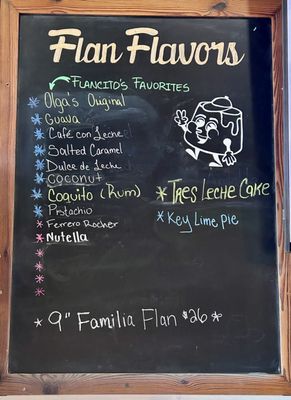 Flan Flavors
Flancito's Favorites
* Olga's Original
* Guava
* Café con Leche
* Salted Caramel
* Dulce de Leche
* Coconut
* Coquito (Rum)
* Pistachio
* Ferrero Rocher
* Nutella
*
*
*
*
* Tres Leche Cake
* Key Lime Pie
* 9" Familia Flan $26 *